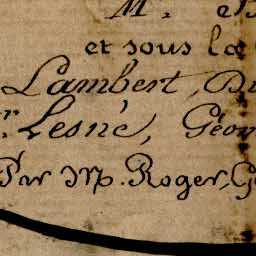 M.
et sous la
Lambert, Du
r. Lesné, Géom
Par Mr. Roger, Gé